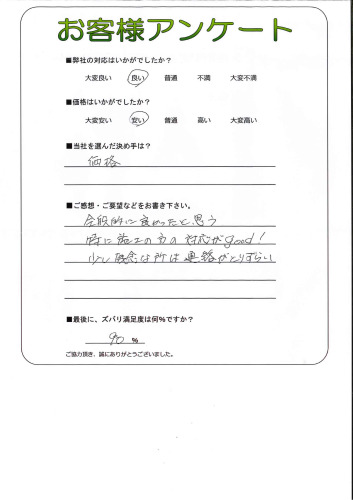 お客様アンケート
■弊社の対応はいかがでしたか？
大変良い 良い 普通 不満 大変不満
■価格はいかがでしたか？
大変安い 安い 普通 高い 大変高い
■当社を選んだ決め手は？
価格
■ご感想・ご要望などをお書き下さい。
全般的に良かったと思う
特に施工の方の対応がgood!
少し残念な所は連絡がとりずらい
■最後に、ズバリ満足度は何％ですか？
90 ％
ご協力頂き、誠にありがとうございました。